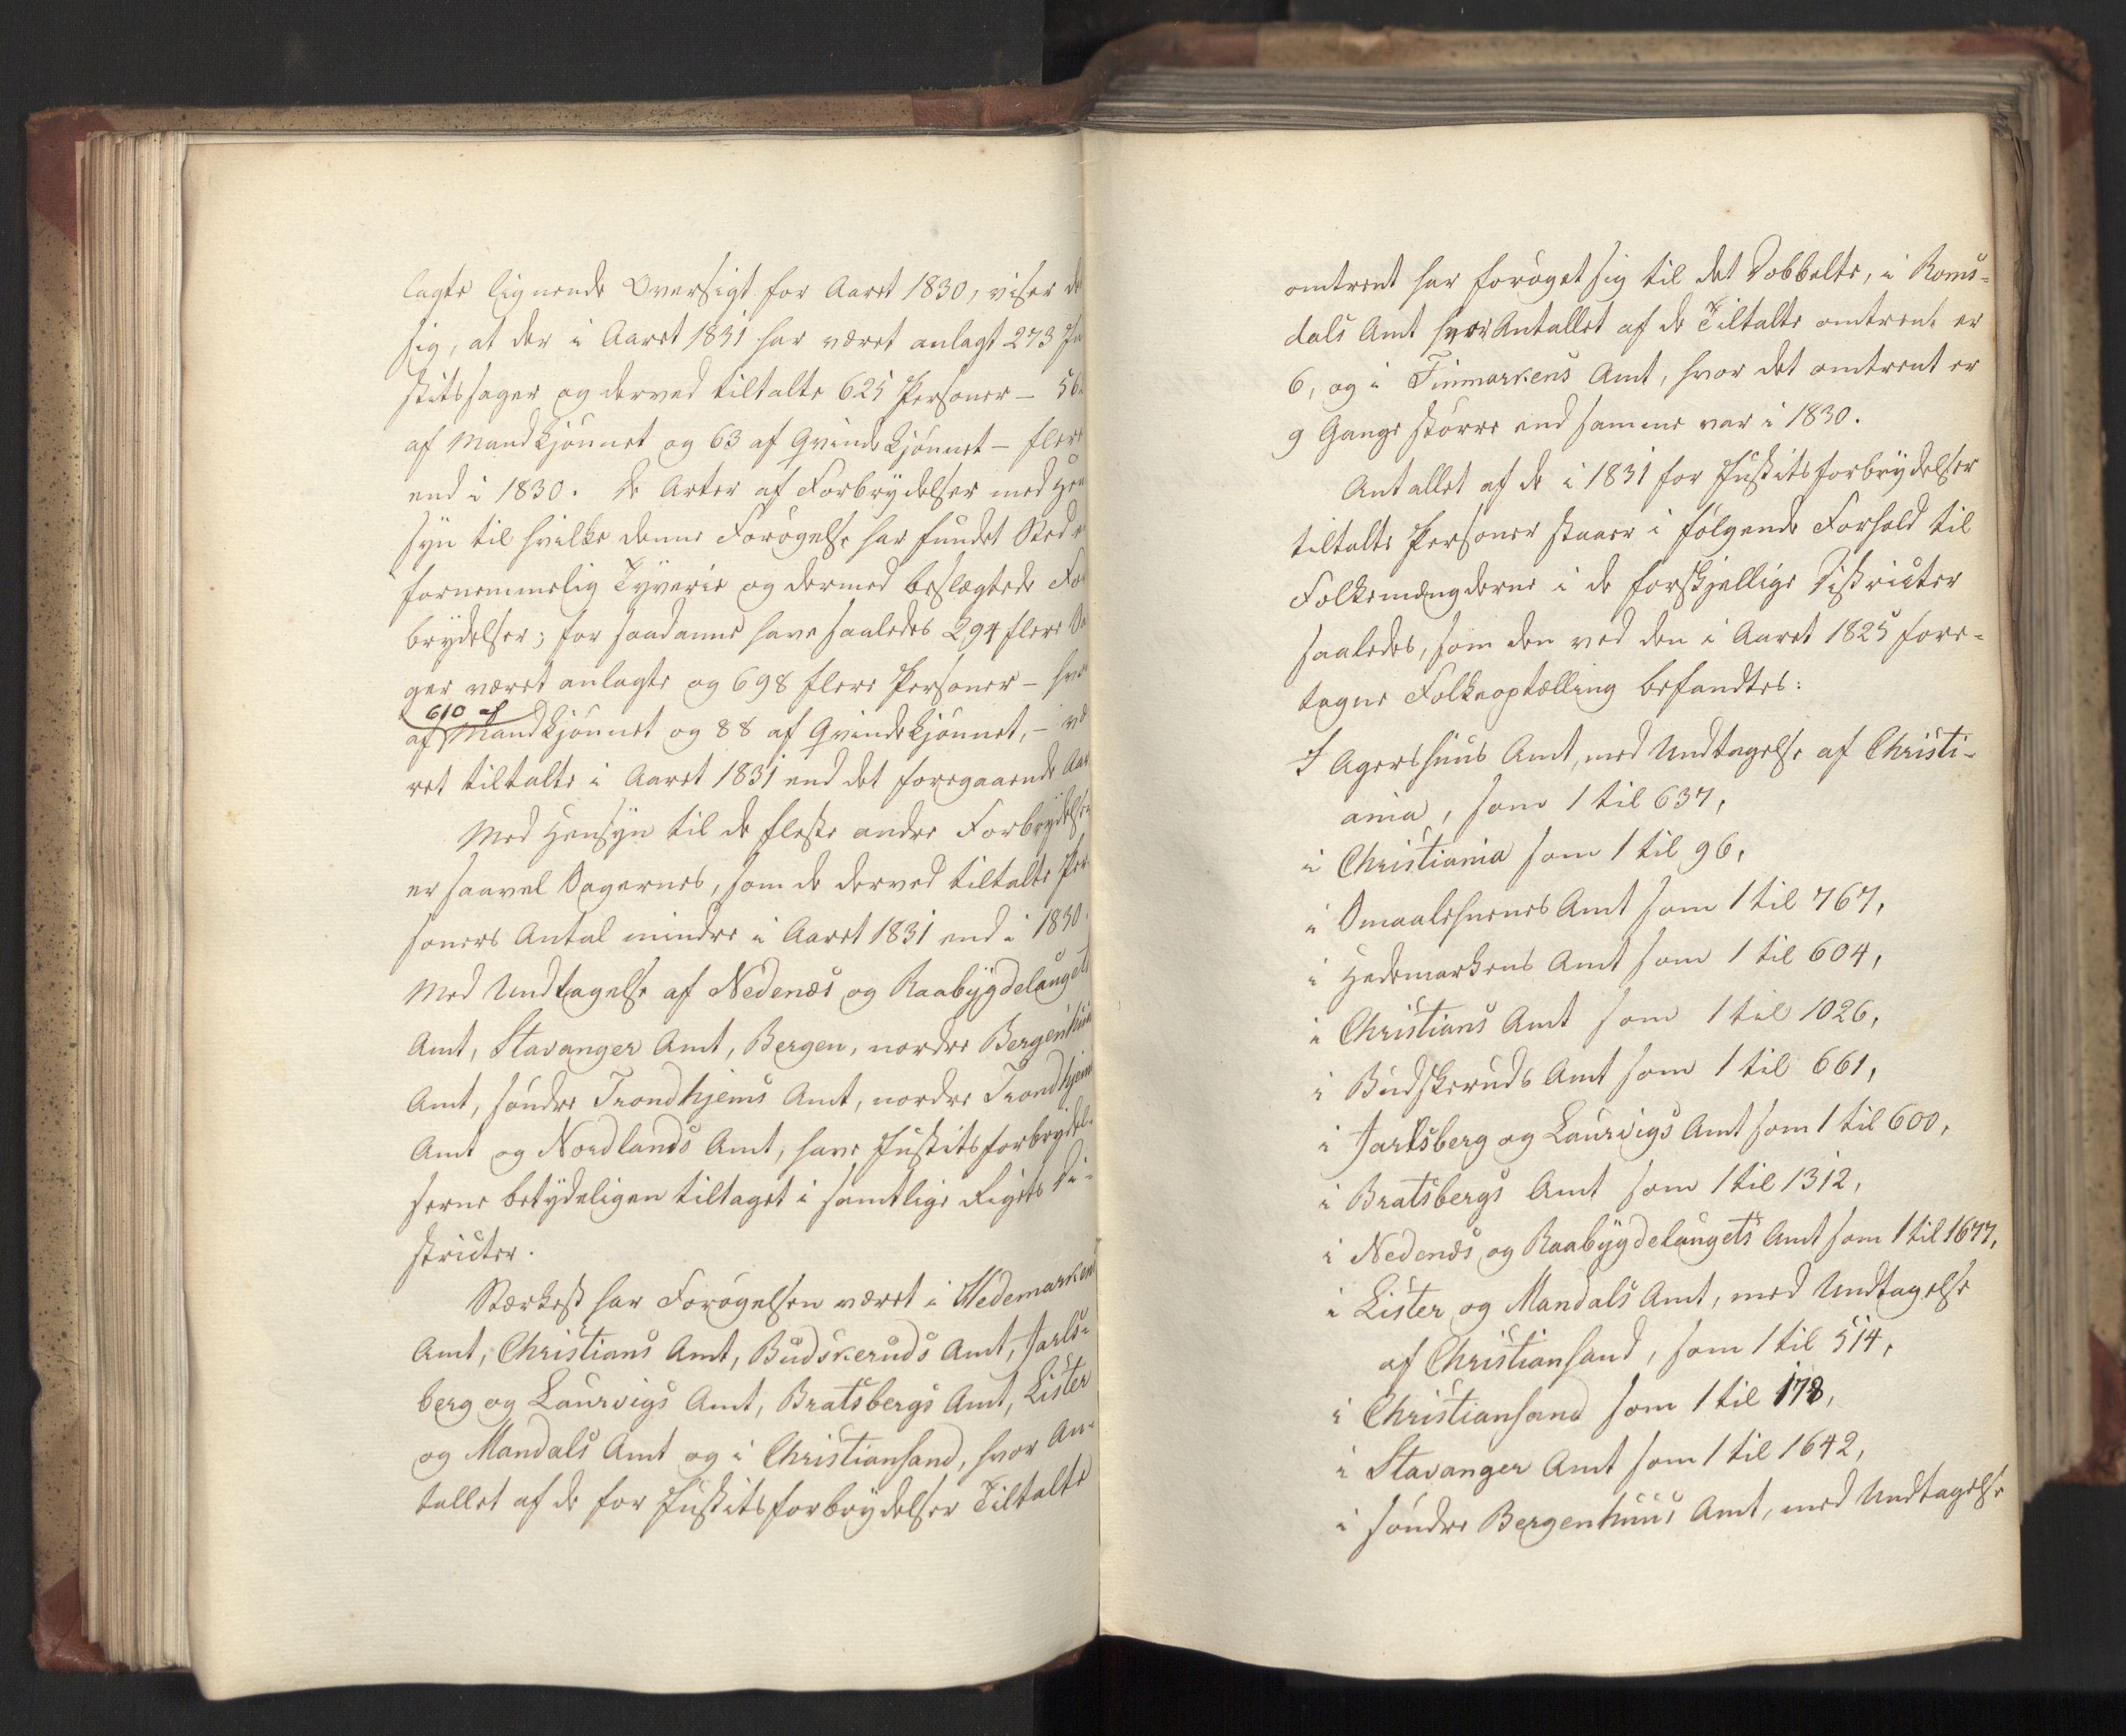 lagte lignende Oversigt for Aaret 1830, viser de
sig, at der i Aaret 1831 har været anlagt 273 Ju
stitssager og derved tiltalte 625 Personer – 56
af Mandkjønnet og 63 af Qvindekjønnet – flere
end i 1830. De Arter af Forbrydelser med Hen
syn til hvilke denne Forøgelse har fundet Sted e
fornemmelig Tyverie og dermed beslægtede For
brydelser; for saadanne have saaledes 294 flere Sa
ger været anlagte og 698 flere Personer – hvo
610 af
af Mandkjønnet og 88 af Qvindekjønnet, – væ
ret tiltalte i Aaret 1831 end det foregaaende Aar
Med Hensyn til de fleste andre Forbrydelser
er saavel Sagernes, som de derved tiltalte Per-
soners Antal mindre i Aaret 1831 end i 1830.
Med Undtagelse af Nedenæs og Raabygdelaugets
Amt, Stavanger Amt, Bergen, nordre Bergenhuus
Amt, søndre Trondhjems Amt, nordre Trondhjems
Amt og Nordlands Amt, have Justitsforbrydel-
serne betydeligen tiltaget i samtlige Rigets Di-
stricter.
Stærkest har Forøgelsen været i Hedemarkens
Amt, Christians Amt, Budskeruds Amt, Jarls-
berg og Laurvigs Amt, Bratsbergs Amt, Lister
og Mandals Amt og i Christiansand, hvor An-
tallet af de for Justitsforbrydelser Tiltalte
omtrent har forøget sig til det Dobbelte, i Roms-
dals Amt hvor Antallet af de Tiltalte omtrent er
6, og i Finmarkens Amt, hvor det omtrent er
9 Gange større end samme var i 1830.
Antallet af de i 1831 for Justitsforbrydelser
tiltalte Personer staaer i følgende Forhold til
Folkemængderne i de forskjellige Districter
saaledes, som den ved den i Aaret 1825 fore-
tagne Folkeoptælling befandtes:
I Agershuus Amt, med Undtagelse af Christi-
ania, som 1 til 637,
i Christiania som 1 til 96,
i Smaalehnenes Amt som 1 til 767,
i Hedemarkens Amt som 1 til 604,
i Christians Amt som 1 til 1026,
i Budskeruds Amt som 1 til 661,
i Jarlsberg og Laurvigs Amt som 1 til 600,
i Bratsbergs Amt som 1 til 1312,
i Nedenæs og Raabygdelaugets Amt som 1 til 1677,
i Lister og Mandals Amt, med Undtagelse
af Christiansand, som 1 til 514,
i Christiansand som 1 til 178,
i Stavanger Amt som 1 til 1642,
i søndre Bergenhuus Amt, med Undtagelse